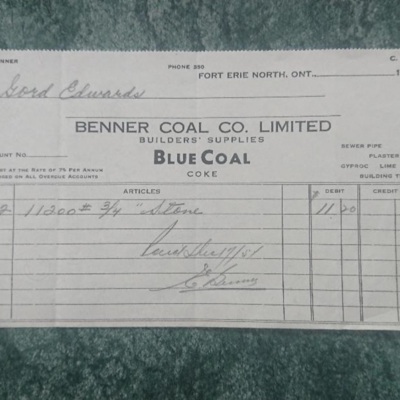 NNER PHONE 200 C.
FORT ERIE NORTH, ONT. 1
Gord Edwards
BENNER COAL CO. LIMITED
BUILDERS' SUPPLIES
BLUE COAL
COKE
SEWER PIPE
PLASTER
GYPROC LIME
BUILDING T
OUNT NO.
ST AT THE RATE OF 7% PER ANNUM
RGED ON ALL OVERDUE ACCOUNTS
ARTICLES DEBIT CREDIT
2 11200 # 3/4 " Stone $ 11 20
19/51